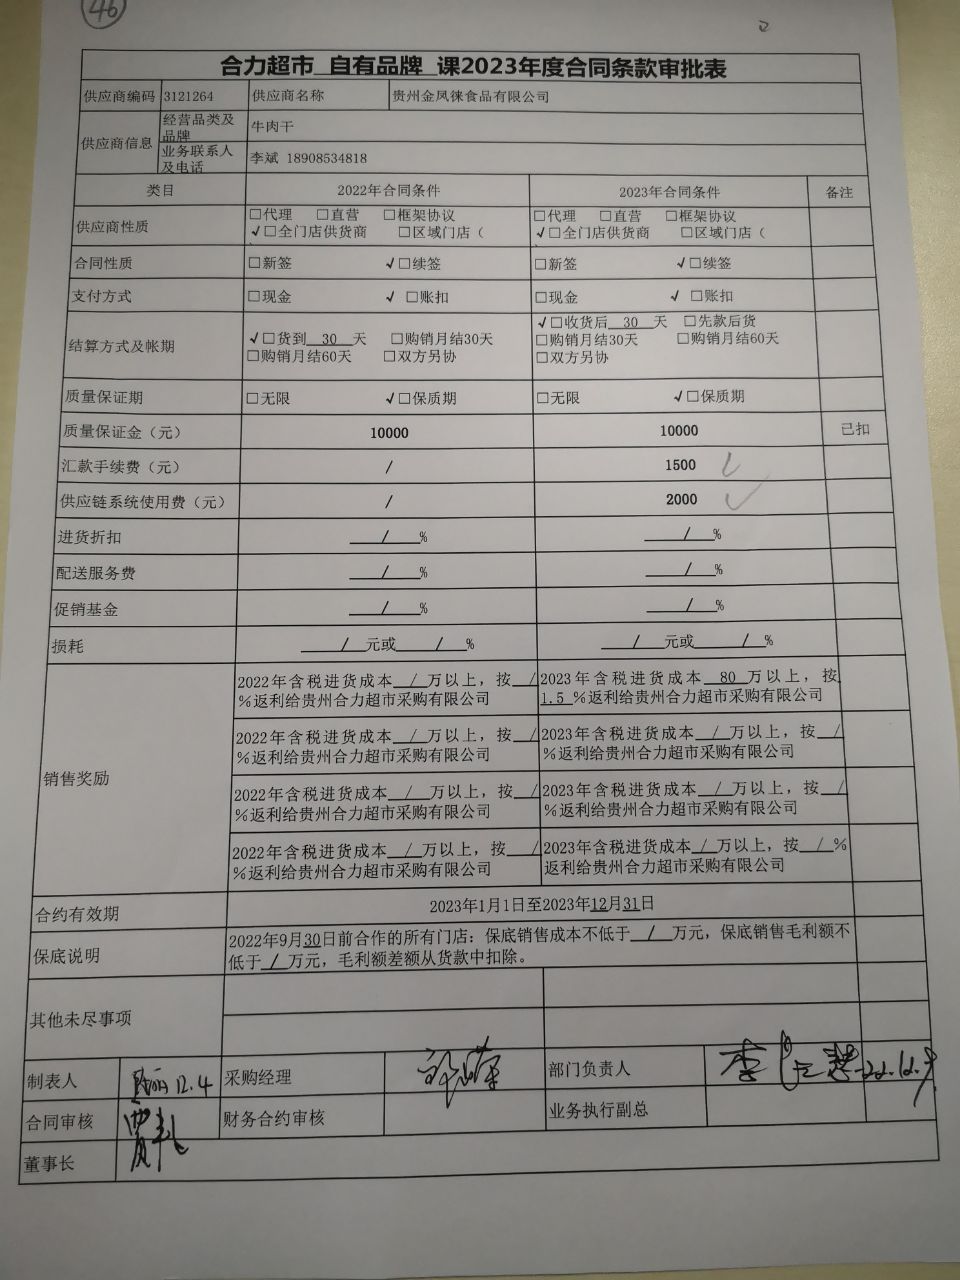 46
合力超市 自有品牌 课2023年度合同条款审批表
供应商编码 3121264 供应商名称 贵州金凤徕食品有限公司
供应商信息 经营品类及品牌 牛肉干
业务联系人及电话 李斌 18908534818
类目 2022年合同条件 2023年合同条件 备注
供应商性质 □代理 □直营 □框架协议 □代理 □直营 □框架协议
√□全门店供货商 □区域门店( √□全门店供货商 □区域门店(
合同性质 □新签 √□续签 □新签 √□续签
支付方式 □现金 √ □账扣 □现金 √ □账扣
结算方式及帐期 √□货到 30 天 □购销月结30天 √□收货后 30 天 □先款后货
□购销月结60天 □双方另协 □购销月结30天 □购销月结60天
□双方另协
质量保证期 □无限 √□保质期 □无限 √□保质期
质量保证金（元） 10000 10000 已扣
汇款手续费（元） / 1500
供应链系统使用费（元） / 2000
进货折扣 / % / %
配送服务费 / % / %
促销基金 / % / %
损耗 / 元或 / % / 元或 / %
销售奖励
2022年含税进货成本 / 万以上，按 / 2023年含税进货成本 80 万以上，按
%返利给贵州合力超市采购有限公司 1.5 %返利给贵州合力超市采购有限公司
2022年含税进货成本 / 万以上，按 / 2023年含税进货成本 / 万以上，按 /
%返利给贵州合力超市采购有限公司 %返利给贵州合力超市采购有限公司
2022年含税进货成本 / 万以上，按 / 2023年含税进货成本 / 万以上，按 /
%返利给贵州合力超市采购有限公司 %返利给贵州合力超市采购有限公司
2022年含税进货成本 / 万以上，按 / 2023年含税进货成本 / 万以上，按 / %
%返利给贵州合力超市采购有限公司 返利给贵州合力超市采购有限公司
合约有效期 2023年1月1日至2023年12月31日
保底说明 2022年9月30日前合作的所有门店：保底销售成本不低于 / 万元，保底销售毛利额不
低于 / 万元，毛利额差额从货款中扣除。
其他未尽事项
制表人 12.4 采购经理 部门负责人
合同审核 财务合约审核 业务执行副总
董事长